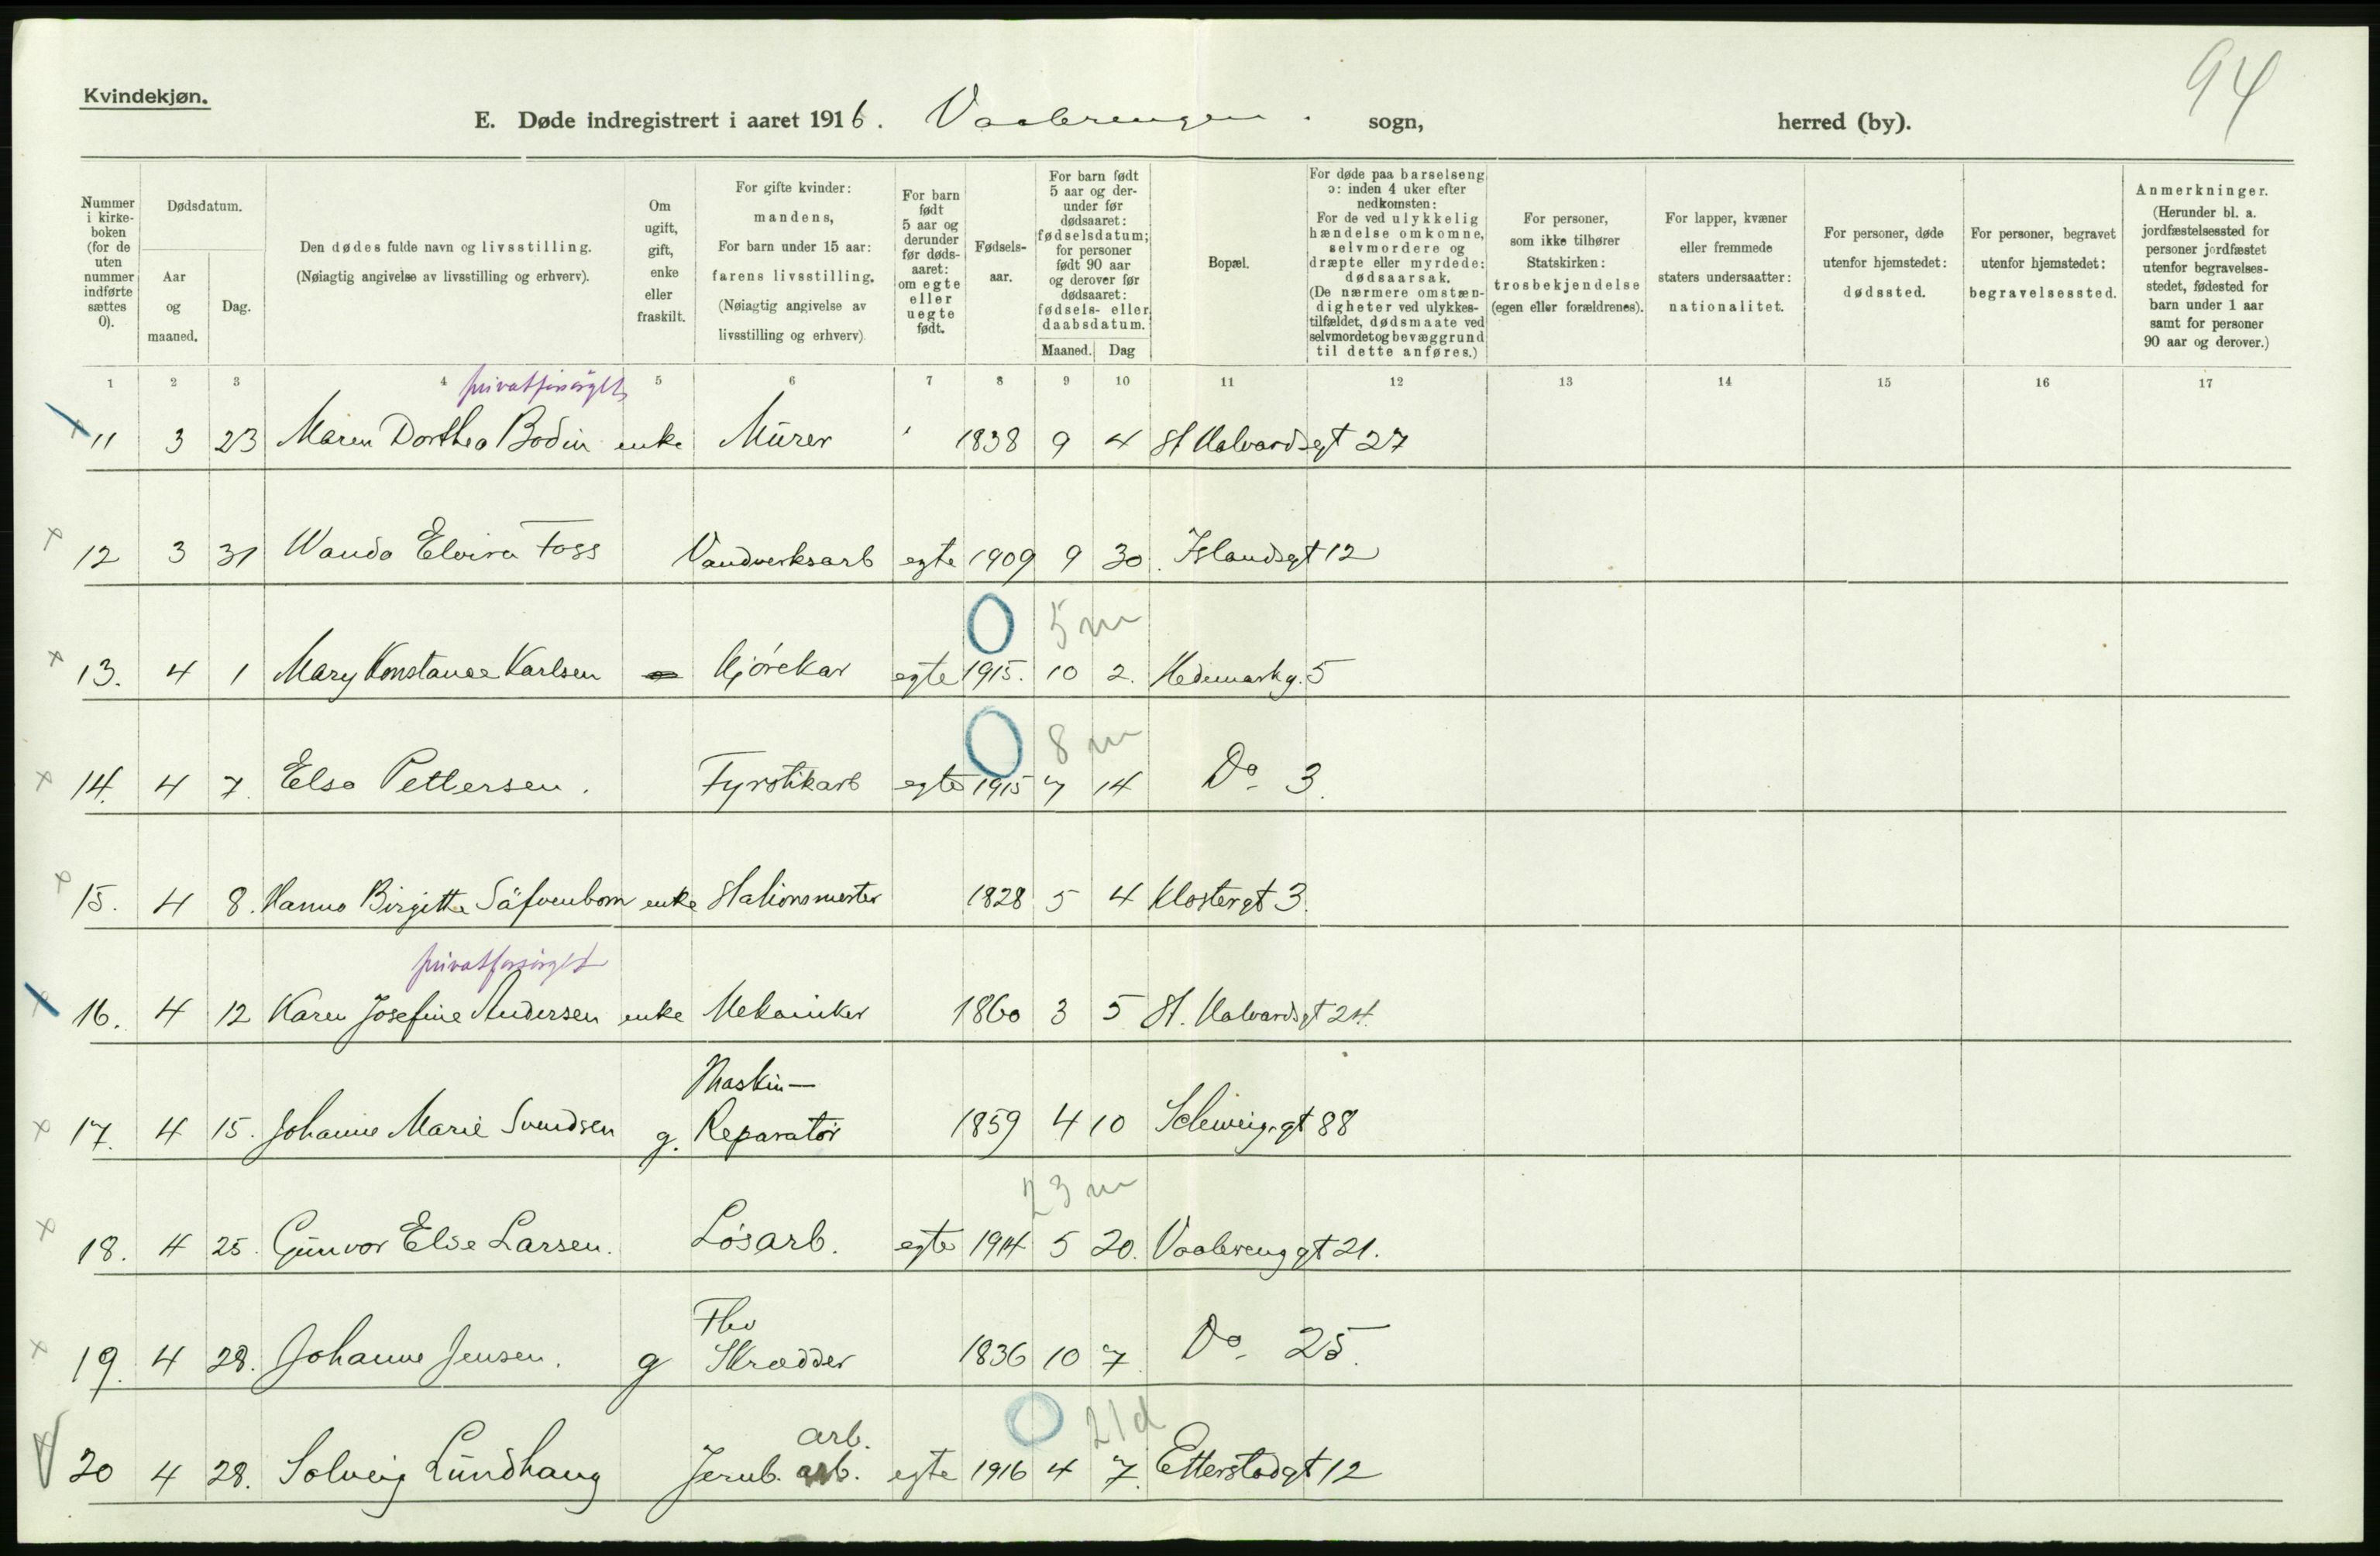 94
Kvindekjøn.
E. Døde indregistrert i aaret 1916. Vaalerengen. sogn, herred (by).
Nummer i kirke-boken (for de uten nummer indførte sættes 0).
Dødsdatum.
Aar og maaned.
Dag.
Den dødes fulde navn og livsstilling.
(Nøiagtig angivelse av livsstilling og erhverv).
Om ugift, gift, enke eller fraskilt.
For gifte kvinder: mandens,
For barn under 15 aar: farens livsstilling.
(Nøiagtig angivelse av livsstilling og erhverv).
For barn født 5 aar og derunder før døds-aaret: om egte eller uegte født.
Fødsels-aar.
For barn født 5 aar og der-under før dødsaaret: fødselsdatum; for personer født 90 aar og derover før dødsaaret: fødsels- eller daabsdatum.
Maaned. Dag
Bopæl.
For døde paa barselseng ɔ: inden 4 uker efter nedkomsten:
For de ved ulykkelig hændelse omkomne, selvmordere og dræpte eller myrdede: dødsaarsak.
(De nærmere omstæn-digheter ved ulykkes-tilfældet, dødsmaate ved selvmordet og bevæggrund til dette anføres.)
For personer, som ikke tilhører Statskirken: trosbekjendelse (egen eller forældrenes).
For lapper, kvæner eller fremmede staters undersaatter: nationalitet.
For personer, døde utenfor hjemstedet: dødssted.
For personer, begravet utenfor hjemstedet: begravelsessted.
Anmerkninger.
(Herunder bl. a. jordfæstelsessted for personer jordfæstet utenfor begravelses-stedet, fødested for barn under 1 aar samt for personer 90 aar og derover.)
1 2 3 4 5 6 7 8 9 10 11 12 13 14 15 16 17
privatforsörget
11 3 23 Maren Dorthea Bodin enke Murer 1838 9 4 St Halvardsgt 27
12 3 31 Wanda Elvira Foss Vandverksarb egte 1909 9 30. Islandsgt 12
0 5 m
13. 4 1 Mary Konstance Karlsen Kjørekar egte 1915. 10 2. Hedemarkg. 5
0 8 m
14. 4 7. Elsa Pettersen. Fyrstikarb egte 1915 7 14 Do 3.
15. 4 8. Hanna Birgitte Säfvenbom enke Stationsmester 1828 5 4 Klostergt 3.
privatforsörget
16. 4 12 Karen Josefine Andersen enke Mekaniker 1860 3 5 St. Halvardsgt 24.
Maskin-
17. 4 15. Johanne Marie Svendsen g. Reparatør 1859 4 10 Schweigsgt 88
23 m
18. 4 25. Gunvor Elise Larsen. Løsarb. egte 1914 5 20. Vaalerenggt 21.
Fhv
19. 4 28. Johanne Jensen. g Skrædder 1836 10 7. Do 25.
0 21 d
arb.
20 4 28. Solveig Lundhaug Jernb. arb. egte 1916 4 7. Etterstadgt 12